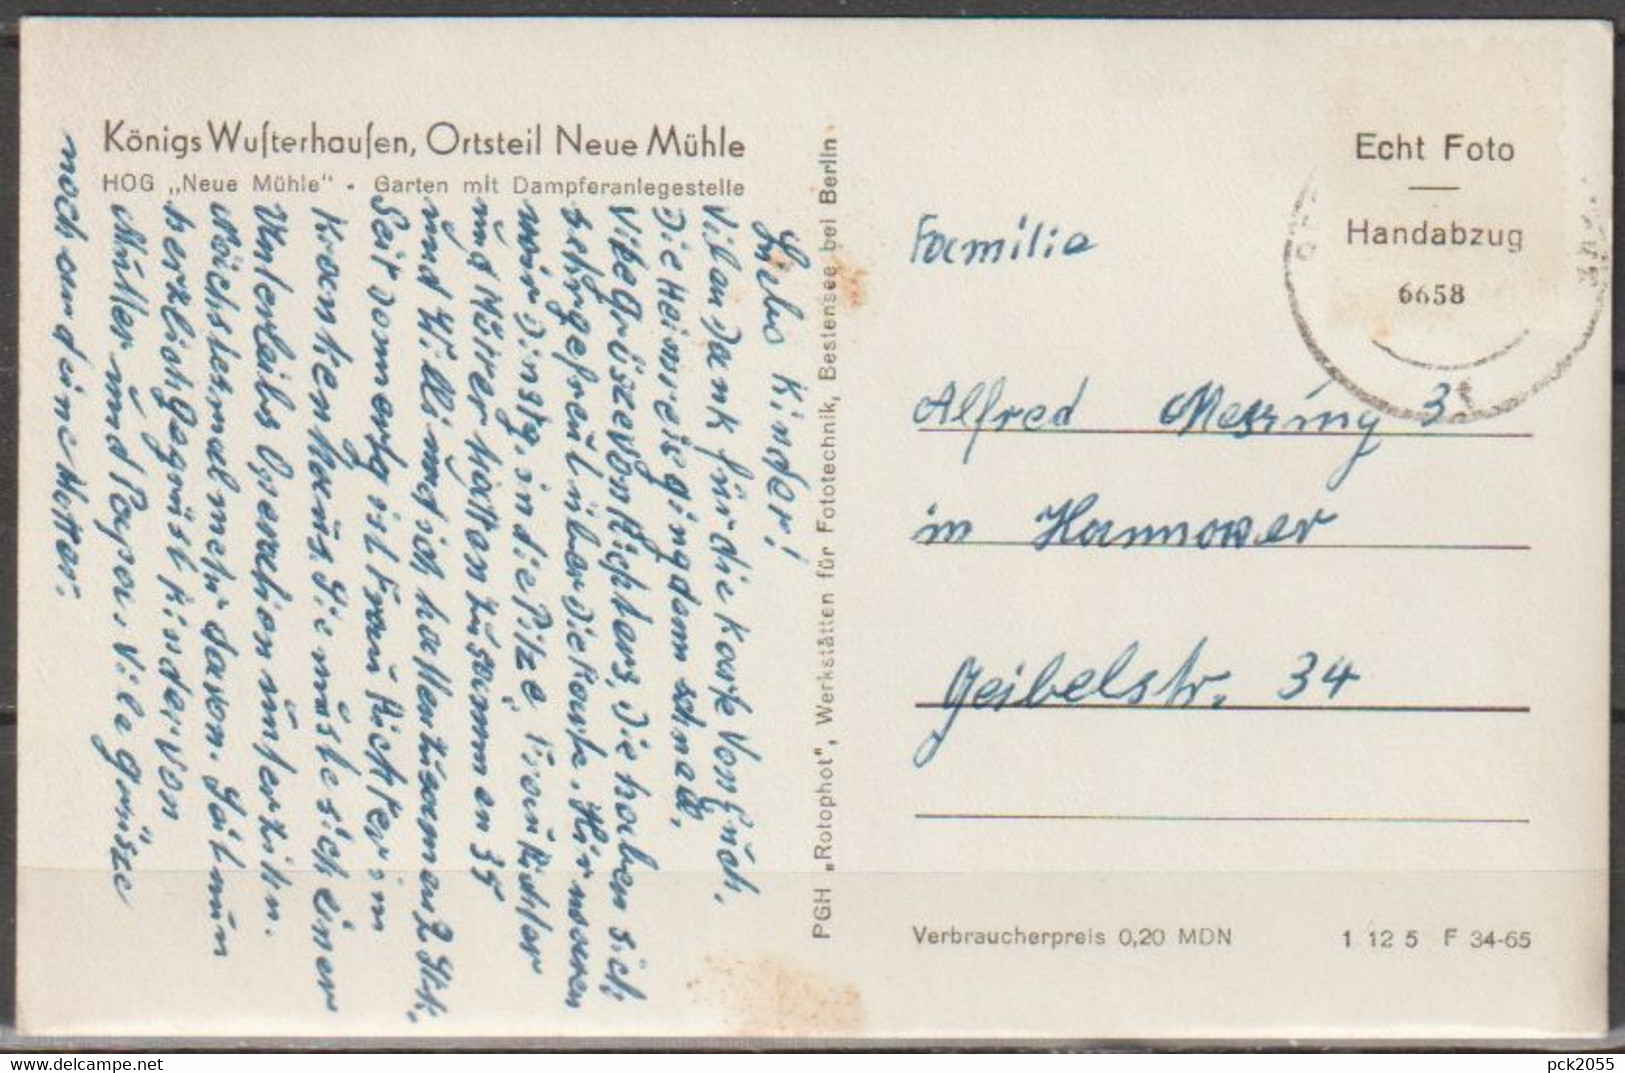 Königs Wusterhausen, Ortsteil Neue Mühle
HOG „Neue Mühle" - Garten mit Dampferanlegestelle
Liebe Kinder!
Vilan Dank für die Karte Von Euch.
Die Heimreise ging dann schnell.
Vile grüsze von Richters, Die haben sich
sehr gefreut über die Karte. Wir waren
wir Dinstg. in die Pilze Frau Richter
und Mutter hatten zusammen 35
und Willi und ich hatten zusammen 2 Stk.
Seit Donnerstg ist Frau Richter im
Krankenhaus. Sie muste sich einer
Unterleibs Operation unterzihn.
Nächstesmal mehr davon. Seit nun
herzlich Gegrüst Kinder von
Mutter und Papa. Vile grüsze
noch an deine Mutter.
PGH „Rotophot", Werkstätten für Fototechnik, Bestensee bei Berlin
Echt Foto
Handabzug
6658
Familie
Alfred Meszing
3
in Hannower
Geibelstr. 34
Verbraucherpreis 0,20 MDN
1 12 5 F 34-65
hippostcard.com
pck2055